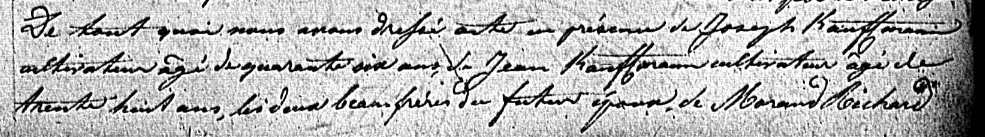 De tout quoi nous avons dressé acte en présence de Joseph Kauffmann
cultivateur âgé de quarante six ans, de Jean Kauffmann cultivateur âgé de
trente huit ans, les deux beaufrères du futur époux, de Morand Richard